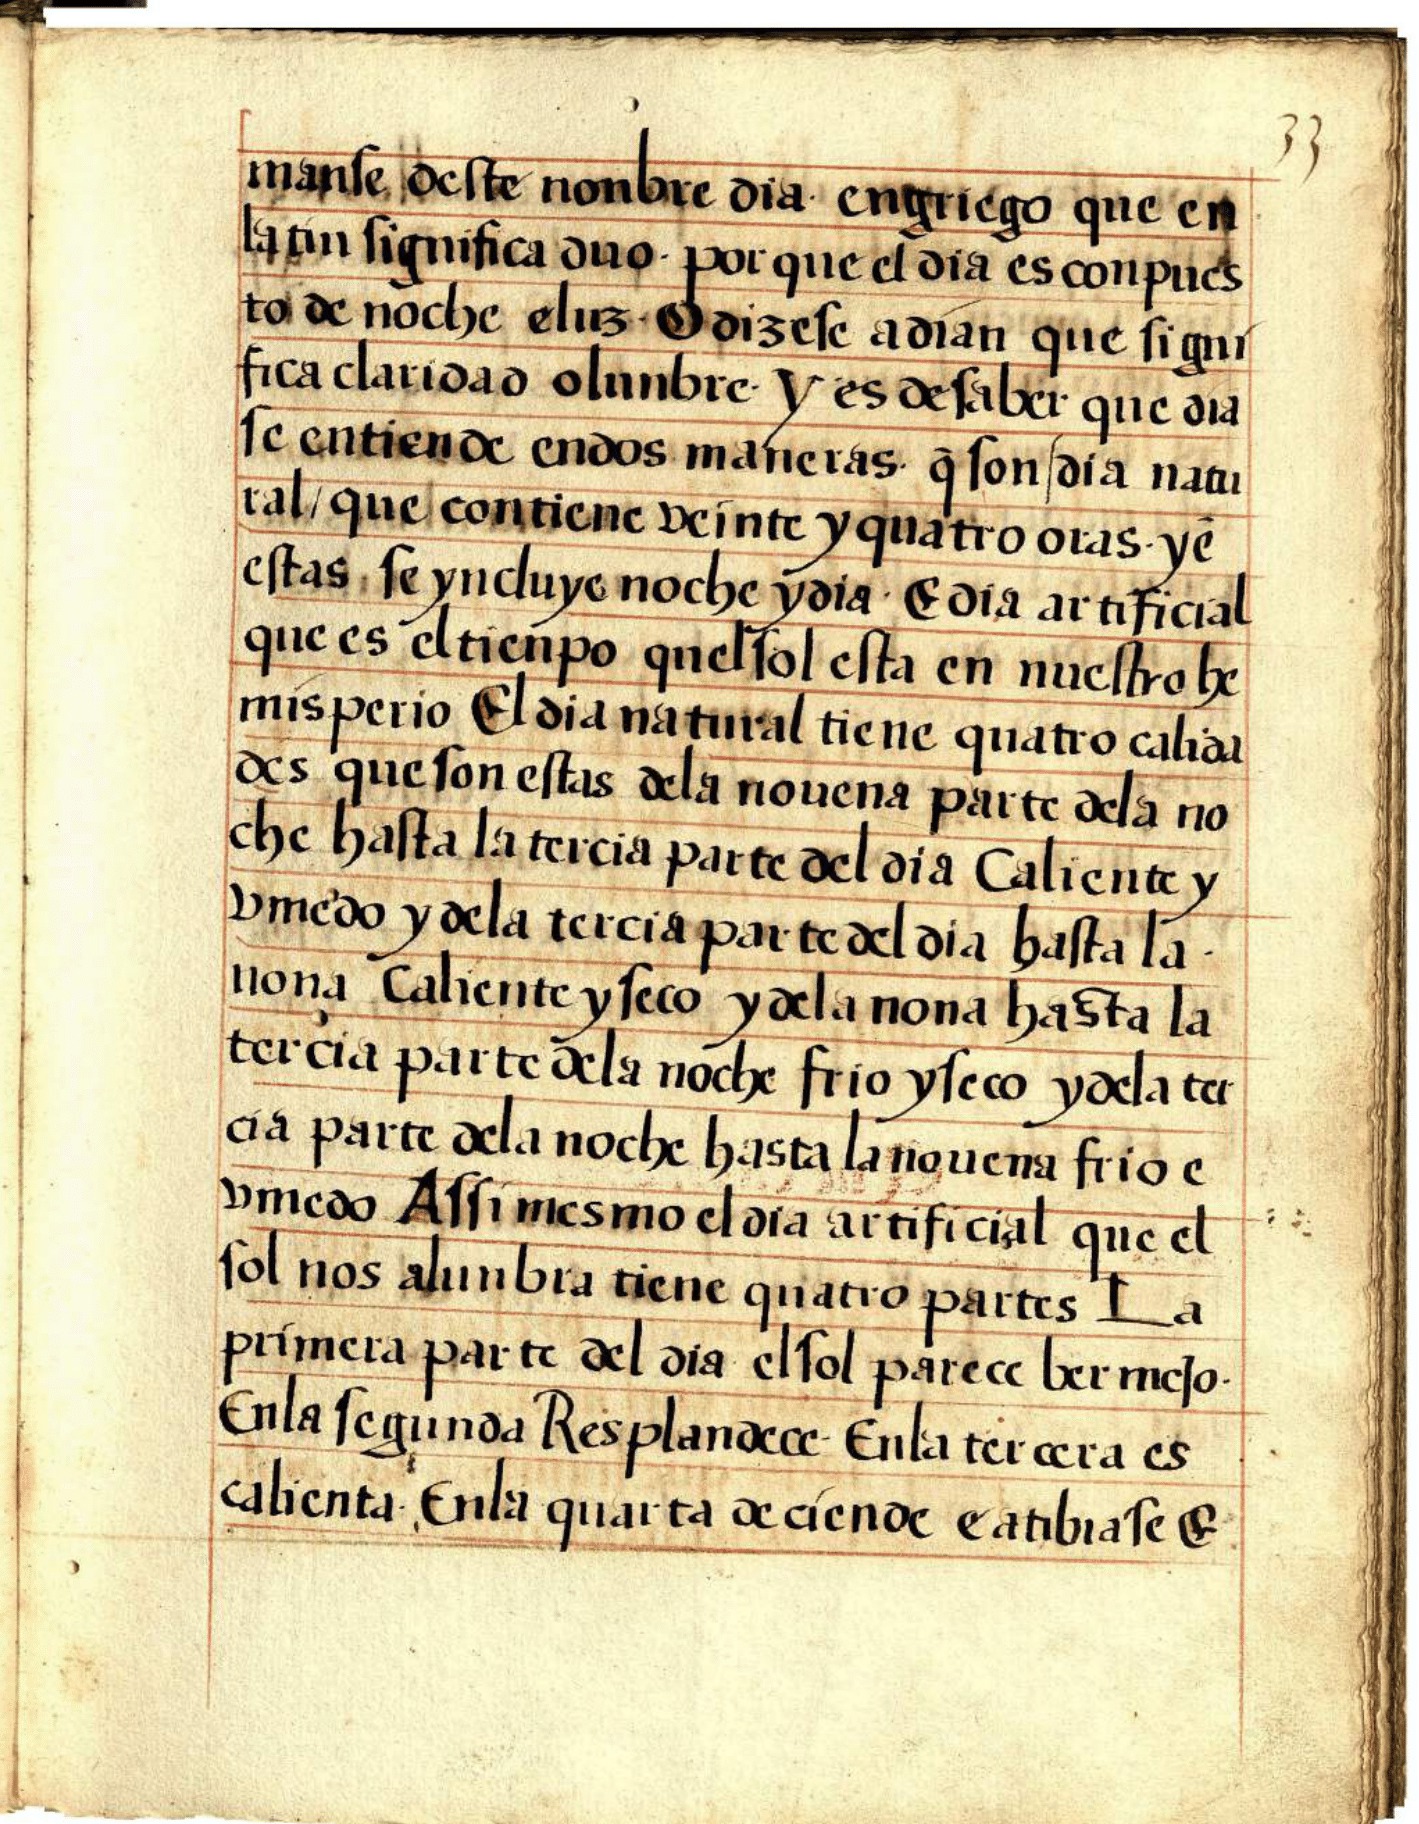 33
manse deste nonbre dia· engriego que en
latin significa duo· porque el dia es conpues
to de noche eluz· O dizese adian que signi
fica claridad olunbre· Y es desaber que dia
se entiende endos maneras· q̄ son/dia natu
ral/que contiene veinte yquatro oras· yē
estas se yncluye noche ydia· E dia artificial
que es eltienpo quelsol esta en nuestro he
misperio El dia natural tiene quatro calida
des que son estas dela nouena parte dela no
che hasta la tercia parte del dia Caliente y
vmedo ydela tercia parte del dia hasta la·
nona Caliente yseco ydela nona hasta la
tercia parte dela noche frio yseco ydela ter
cia parte dela noche hasta la nouena frio e
vmedo Assi mesmo el dia artificial que el
sol nos alunbra tiene quatro partes La
primera parte del dia elsol parece bermejo·
Enla segunda Resplandece· Enla tercera es
calienta· Enla quarta deciende e atibiase E